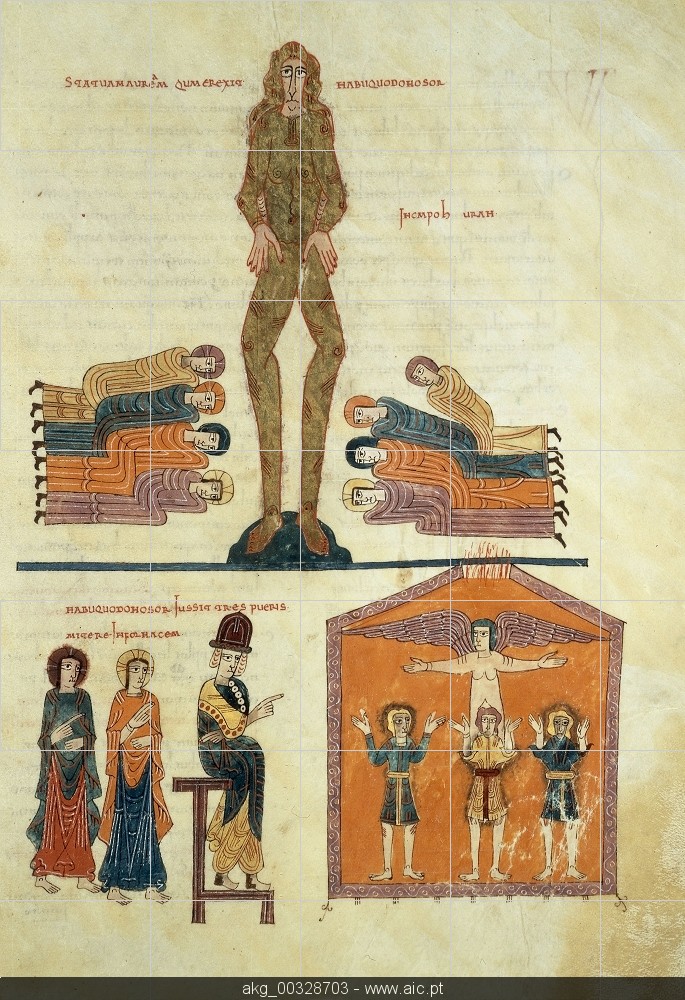 STATUAM AUREAM QUM EREXIT NABUQUODONOSOR
IN CMPOH URAN
NABUQUODONOSOR IUSSIT TRES PUERIS
MITERE IN FORNACEM
akg_00328703 - www.aic.pt